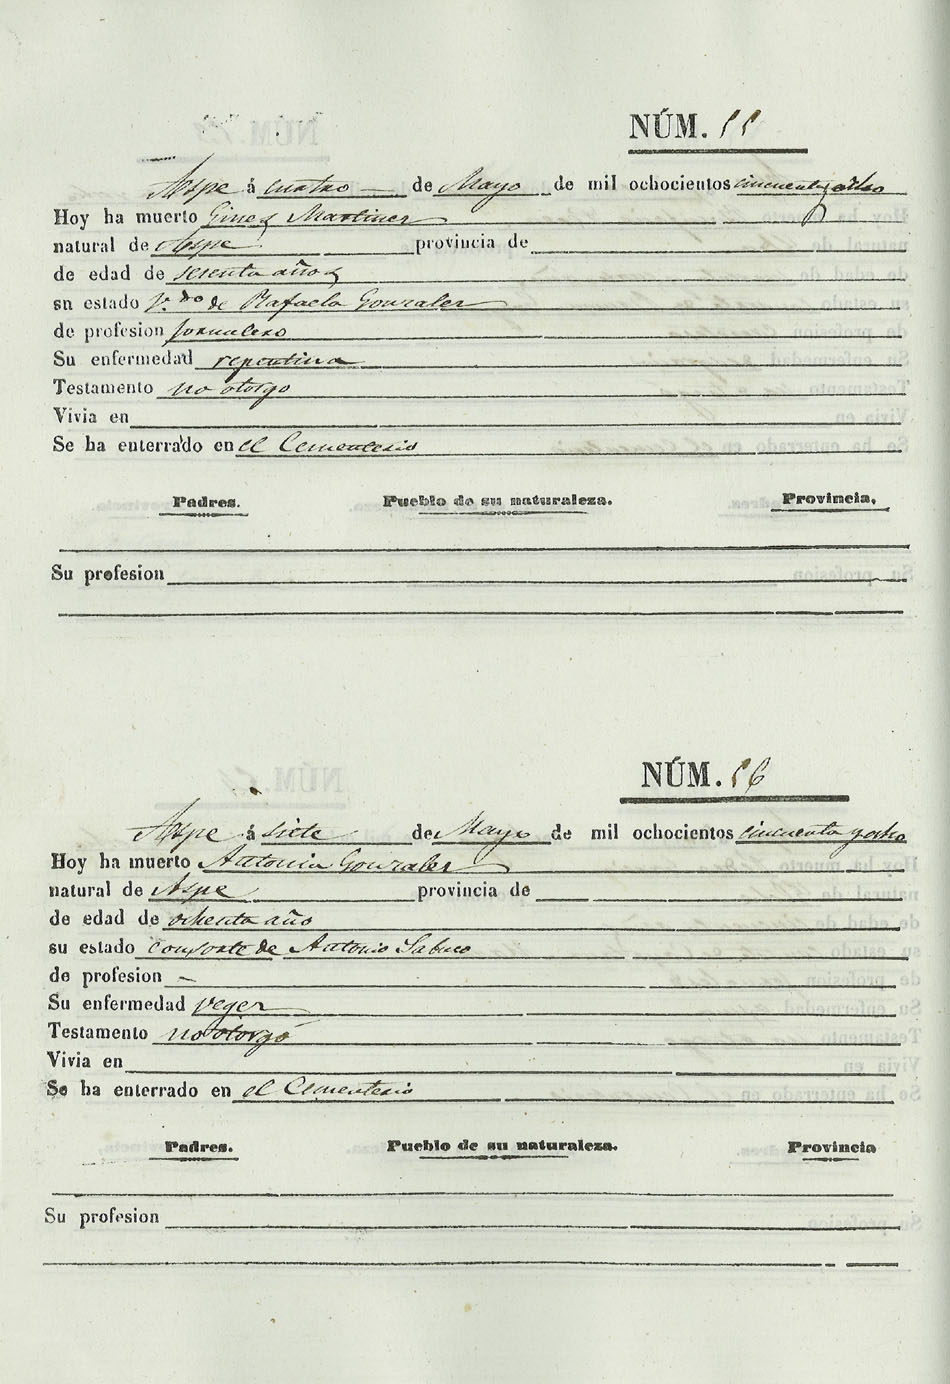 NÚM. 55
Aspe á cuatro de Mayo de mil ochocientos cincuenta y ocho
Hoy ha muerto Gines Martinez
natural de Aspe provincia de
de edad de sesenta años
su estado v.do de Rafaela Gonzalez
de profesion jornalero
Su enfermedad repentina
Testamento no otorgo
Vivia en
Se ha enterrado en el Cementerio
Padres. Pueblo de su naturaleza. Provincia.
Su profesion
NÚM. 56
Aspe á siete de Mayo de mil ochocientos cincuenta y ocho
Hoy ha muerto Antonia Gonzalez
natural de Aspe provincia de
de edad de ochenta año
su estado consorte de Antonio Sabuco
de profesion -
Su enfermedad vegez
Testamento no otorgó
Vivia en
Se ha enterrado en el Cementerio
Padres. Pueblo de su naturaleza. Provincia
Su profesion